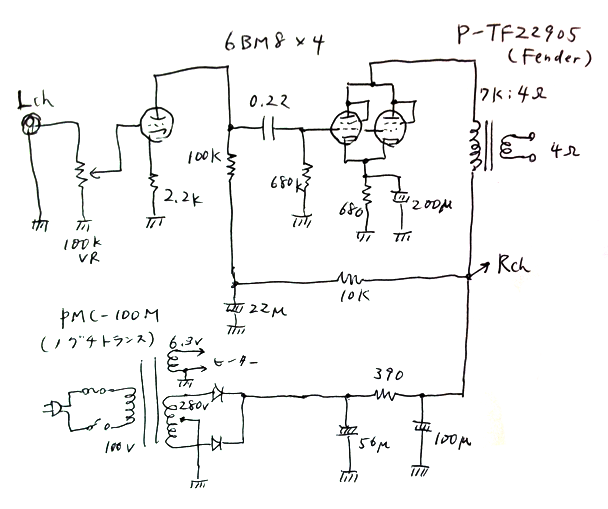 6BM8 × 4
P-TF22905
(Fender)
Lch
7K:4Ω
0.22
100K
680K
4Ω
2.2K
680
200μ
100K
VR
Rch
10K
22μ
PMC-100M
(ノグチトランス)
6.3V
ヒーター
280V
390
100V
56μ
100μ